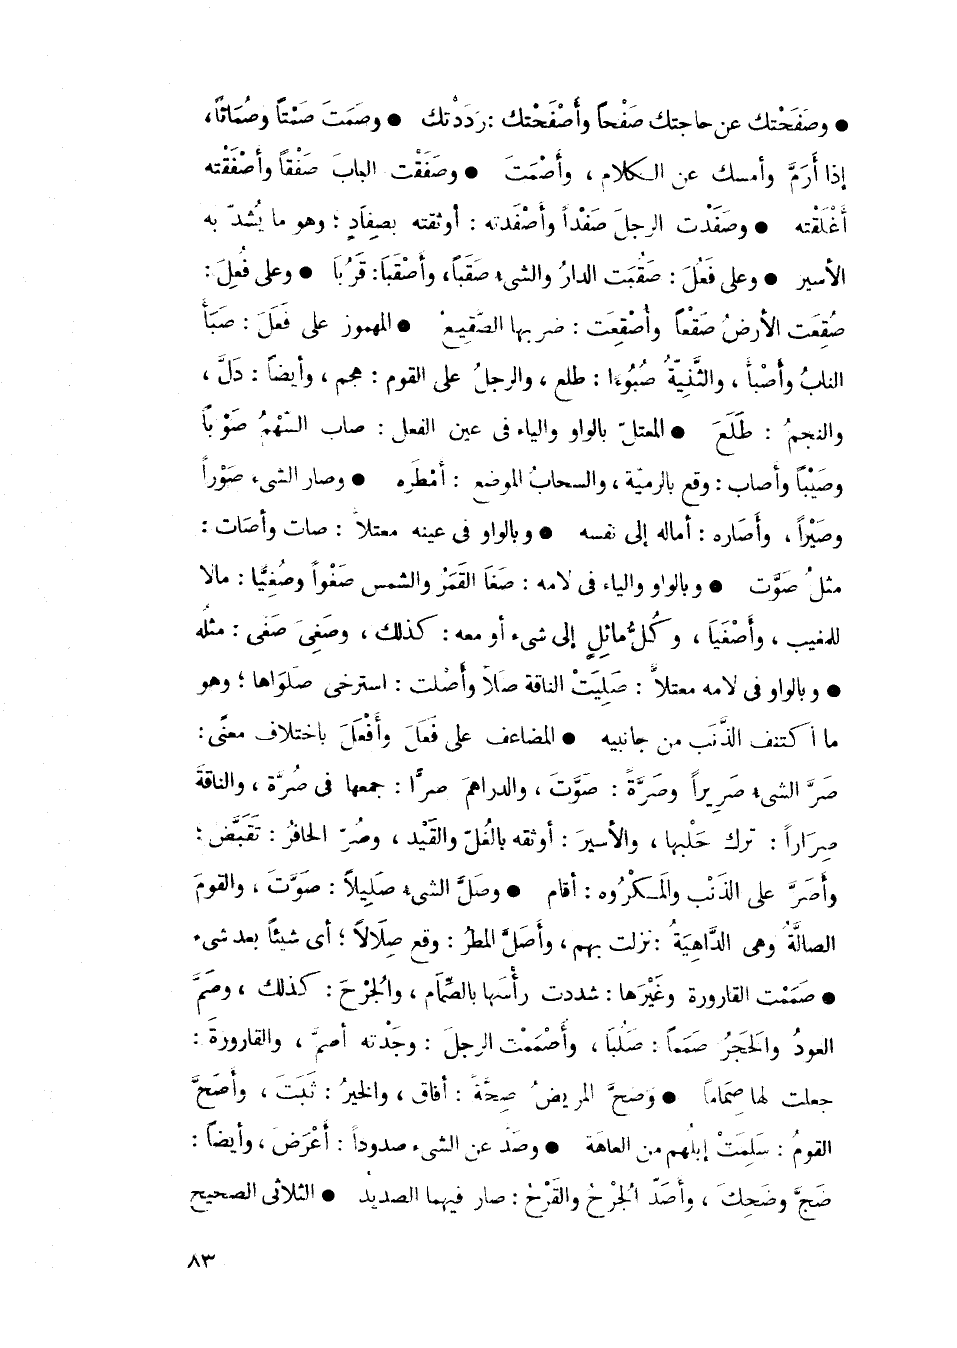 ● وصَفَحْتك عن حاجتك صَفْحاً وأَصْفَحْتك : رَدَدْتك ● وصَمَتَ صَمْتاً وصُمَاتاً،
إذا أَرَمَّ وأمسك عن الكلام ، وأَصْمَتَ ● وصَفَقْت البابَ صَفْقاً وأَصْفَقْته
أَغْلَقْته ● وصَفَدْت الرجلَ صَفْداً وأَصْفَدته : أوثقته بصِفَادٍ ؛ وهو ما يُشدّ به
الأسير ● وعلى فَعُلَ : صَقُبَت الدارُ والشىء صَقَباً، وأَصْقَبَا: قَرُبَا ● وعلى فُعِلَ :
صُقِعَت الأرضُ صَقْعاً وأُصْقِعَت : ضربها الصَّقِيعُ ● المهموز على فَعَلَ : صَبَأَ
النابُ وأَصْبأَ ، والثَّنِيَّةُ صُبُوءًا : طلع ، والرجلُ على القوم : هجم ، وأيضاً : دَلَّ ،
والنجمُ : طَلَعَ ● المعتلّ بالواو والياء فى عين الفعل : صاب السَّهْمُ صَوْباً
وصَيْباً وأصاب : وقع بالرميّة ، والسحابُ الموضع : أَمْطَره ● وصار الشىء صَوْراً
وصَيْراً ، وأَصَاره : أماله إلى نفسه ● وبالواو فى عينه معتلاً : صات وأصَات :
مثلُ صَوَّت ● وبالواو والياء فى لامه : صَغَا القَمَرُ والشمس صَغْواً وصُغِيًّا : مالا
للمغيب ، وأَصْغَيَا ، وكُلُّ مائِلٍ إلى شىء أو معه : كذلك ، وصَغِىَ صَغًى : مثلُه
● وبالواو فى لامه معتلاًّ : صَلِيَتْ الناقة صَلاً وأَصْلت : استرخى صَلَوَاها ؛ وهو
ما اكتنف الذَّنَب من جانبيه ● المضاعف على فَعَلَ وأَفْعَلَ باختلاف معنًى :
صَرَّ الشىء صَرِيراً وصَرَّةً : صَوَّتَ ، والدراهمَ صرًّا : جمعها فى صُرَّة ، والناقةَ
صِرَاراً : ترك حَلْبها ، والأسيرَ : أوثقه بالغُلّ والقَيْد ، وصُرّ الحافرُ : تَقَبَّض ؛
وأَصَرَّ على الذَنْب والمَكْرُوه : أقام ● وصَلَّ الشىء صَلِيلاً : صَوَّتَ ، والقومَ
الصالَّةُ وهى الدَّاهِيَةُ : نزلت بهم ، وأَصَلَّ المطرُ : وقع صِلَالاً ؛ أى شيئاً بعد شىء
● صَمَمْت القارورة وغَيْرَها : شددت رأْسَها بالصِّمَام ، والجُرْحَ : كذلك ، وصَمَّ
العودُ والحَجَرُ صَمَماً : صَلُبَا ، وأَصْمَمْت الرجلَ : وجَدْته أصمَّ ، والقارورةَ :
جعلت لها صِمَاماً ● وَصَحَّ المريضُ صِحَّةً : أفاق ، والخبرُ : ثَبَتَ ، وأَصَحَّ
القومُ : سَلِمَتْ إبلُهم من العاهَة ● وصَدّ عن الشىء صدوداً : أَعْرَضَ ، وأيضاً :
ضَجَّ وضَحِكَ ، وأَصَدّ الجُرْحُ والقَرْحُ : صار فيهما الصديدُ ● الثلاثى الصحيح
٨٣